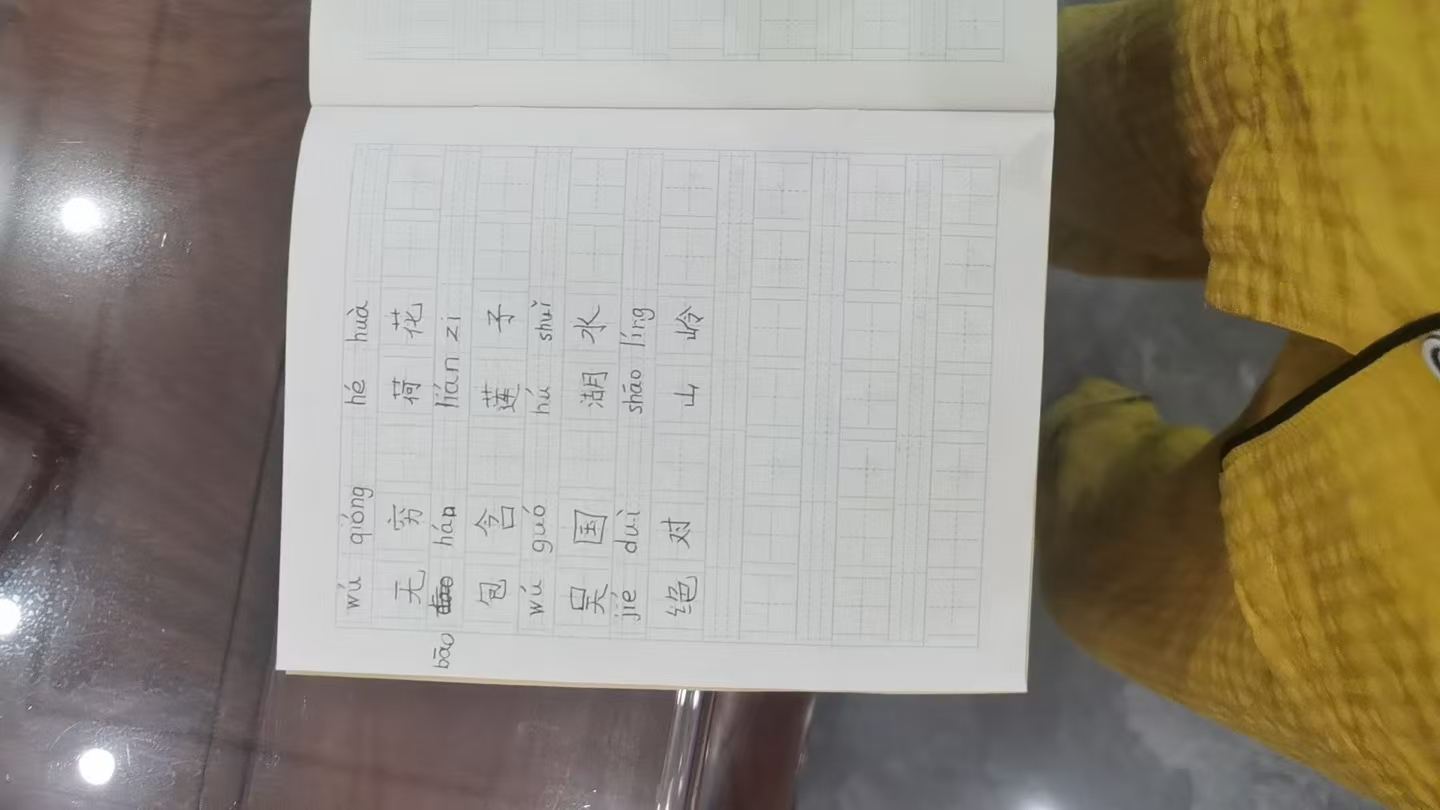 wú qióng hé huà
无 穷 荷 花
bāo hán lián zi
包 含 莲 子
wú guó hú shuǐ
吴 国 湖 水
jié duì shāo líng
绝 对 山 岭